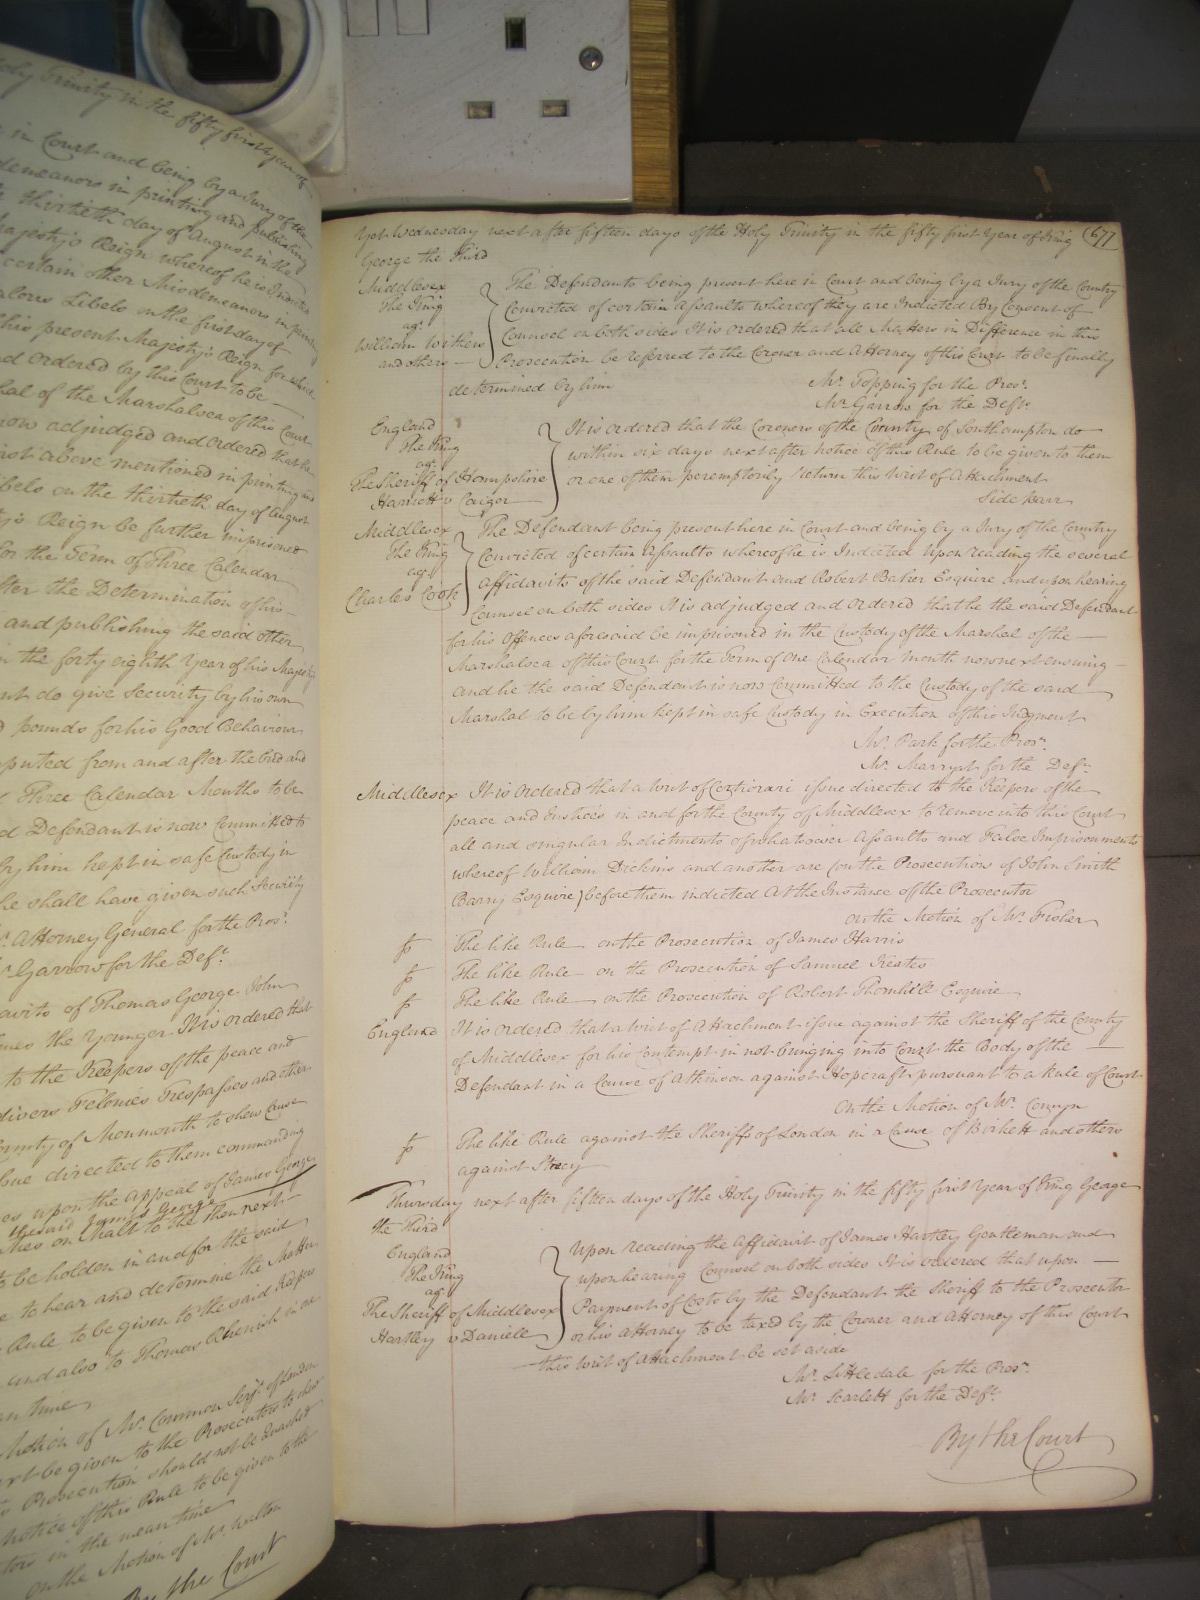 Holy Trinity in the fifty first year of
in Court and being by a Jury of the
demeanors in printing and publishing
thirtieth day of August in the
Majesty's Reign whereof he is Indicted
certain other Misdemeanors in printing
Libels on the first day of
this present Majesty's Reign for which
ordered by this Court to be
of the Marshalsea of this Court
now adjudged and ordered that he
first above mentioned in printing and
Libels on the thirtieth day of August
Reign be further imprisoned
for the Term of Three Calendar
after the Determination of his
and publishing the said other
in the forty eighth Year of his Majesty's
do give Security by his own
pounds for his Good Behaviour
computed from and after the End and
Three Calendar Months to be
Defendant is now Committed to
by him kept in safe Custody in
he shall have given such Security
Mr. Attorney General for the Prosr.
Mr. Garrow for the Deft.
of Thomas George John
the Younger It is ordered that
to the Keepers of the peace and
divers Felonies Trespasses and other
County of Monmouth to shew Cause
issue directed to them commanding
upon the Appeal of James George
the said James George
on Malt to the then next
to be holden in and for the said
to hear and determine the Matter
Rule to be given to the said Keepers
and also to Thomas Rhenish in the
mean time
Motion of Mr. Common Serjt. of London
be given to the Prosecutor to shew
Prosecution should not be quashed
Notice of this Rule to be given to the
in the mean time
On the Motion of Mr. Walton
By the Court
Yet Wednesday next after fifteen days of the Holy Trinity in the fifty first Year of King 677
George the Third
Middlesex
The King
agt.
William Withers
and others
The Defendants being present here in Court and being by a Jury of the Country
Convicted of certain Assaults whereof they are Indicted By Consent of
Counsel on both sides It is ordered that all Matters in Difference in this
Prosecution be referred to the Coroner and Attorney of this Court to be finally
determined by him
Mr. Topping for the Prosr.
Mr. Garrow for the Deft.
England
The King
agt.
The Sheriff of Hampshire
Harnett v Caiger
It is ordered that the Coroners of the County of Southampton do
within six days next after notice of this Rule to be given to them
or one of them peremptorily return this Writ of Attachment
Side barr
Middlesex
The King
agt.
Charles Cook
The Defendant being present here in Court and being by a Jury of the Country
Convicted of certain Assaults whereof he is Indicted Upon reading the several
Affidavits of the said Defendant and Robert Baker Esquire and upon hearing
Counsel on both sides It is adjudged and ordered that he the said Defendant
for his Offences aforesaid be imprisoned in the Custody of the Marshal of the
Marshalsea of this Court for the Term of One Calendar Month now next ensuing
and he the said Defendant is now Committed to the Custody of the said
Marshal to be by him kept in safe Custody in Execution of this Judgment
Mr. Park for the Prosr.
Mr. Marryat for the Deft.
Middlesex It is Ordered that a writ of Certiorari issue directed to the Keepers of the
peace and Justices in and for the County of Middlesex to remove into this Court
all and singular Indictments of whatsoever Assaults and False Imprisonments
whereof William Dickins and another are (on the Prosecution of John Smith
Barry Esquire) before them indicted At the Instance of the Prosecutor
On the Motion of Mr. Fisher
The like Rule on the Prosecution of James Harris
The like Rule on the Prosecution of Samuel
The like Rule on the Prosecution of Robert Thornhill Esquire
England It is ordered that a writ of Attachment issue against the Sheriff of the County
of Middlesex for his Contempt in not bringing into Court the Body of the
Defendant in a Cause of Atkinson against Hopcraft pursuant to a Rule of Court
On the Motion of Mr. Comyn
The like Rule against the Sheriffs of London in a Cause of Birkett and others
against
Thursday next after fifteen days of the Holy Trinity in the fifty first Year of King George
the Third
England
The King
agt.
The Sheriff of Middlesex
Hartley v Daniell
Upon reading the Affidavit of James Hartley Gentleman and
upon hearing Counsel on both sides It is ordered that upon
Payment of Costs by the Defendant the Sheriff to the Prosecutor
or his Attorney to be taxed by the Coroner and Attorney of this Court
this Writ of Attachment be set aside
Mr. Littledale for the Prosr.
Mr. Scarlett for the Deft.
By the Court